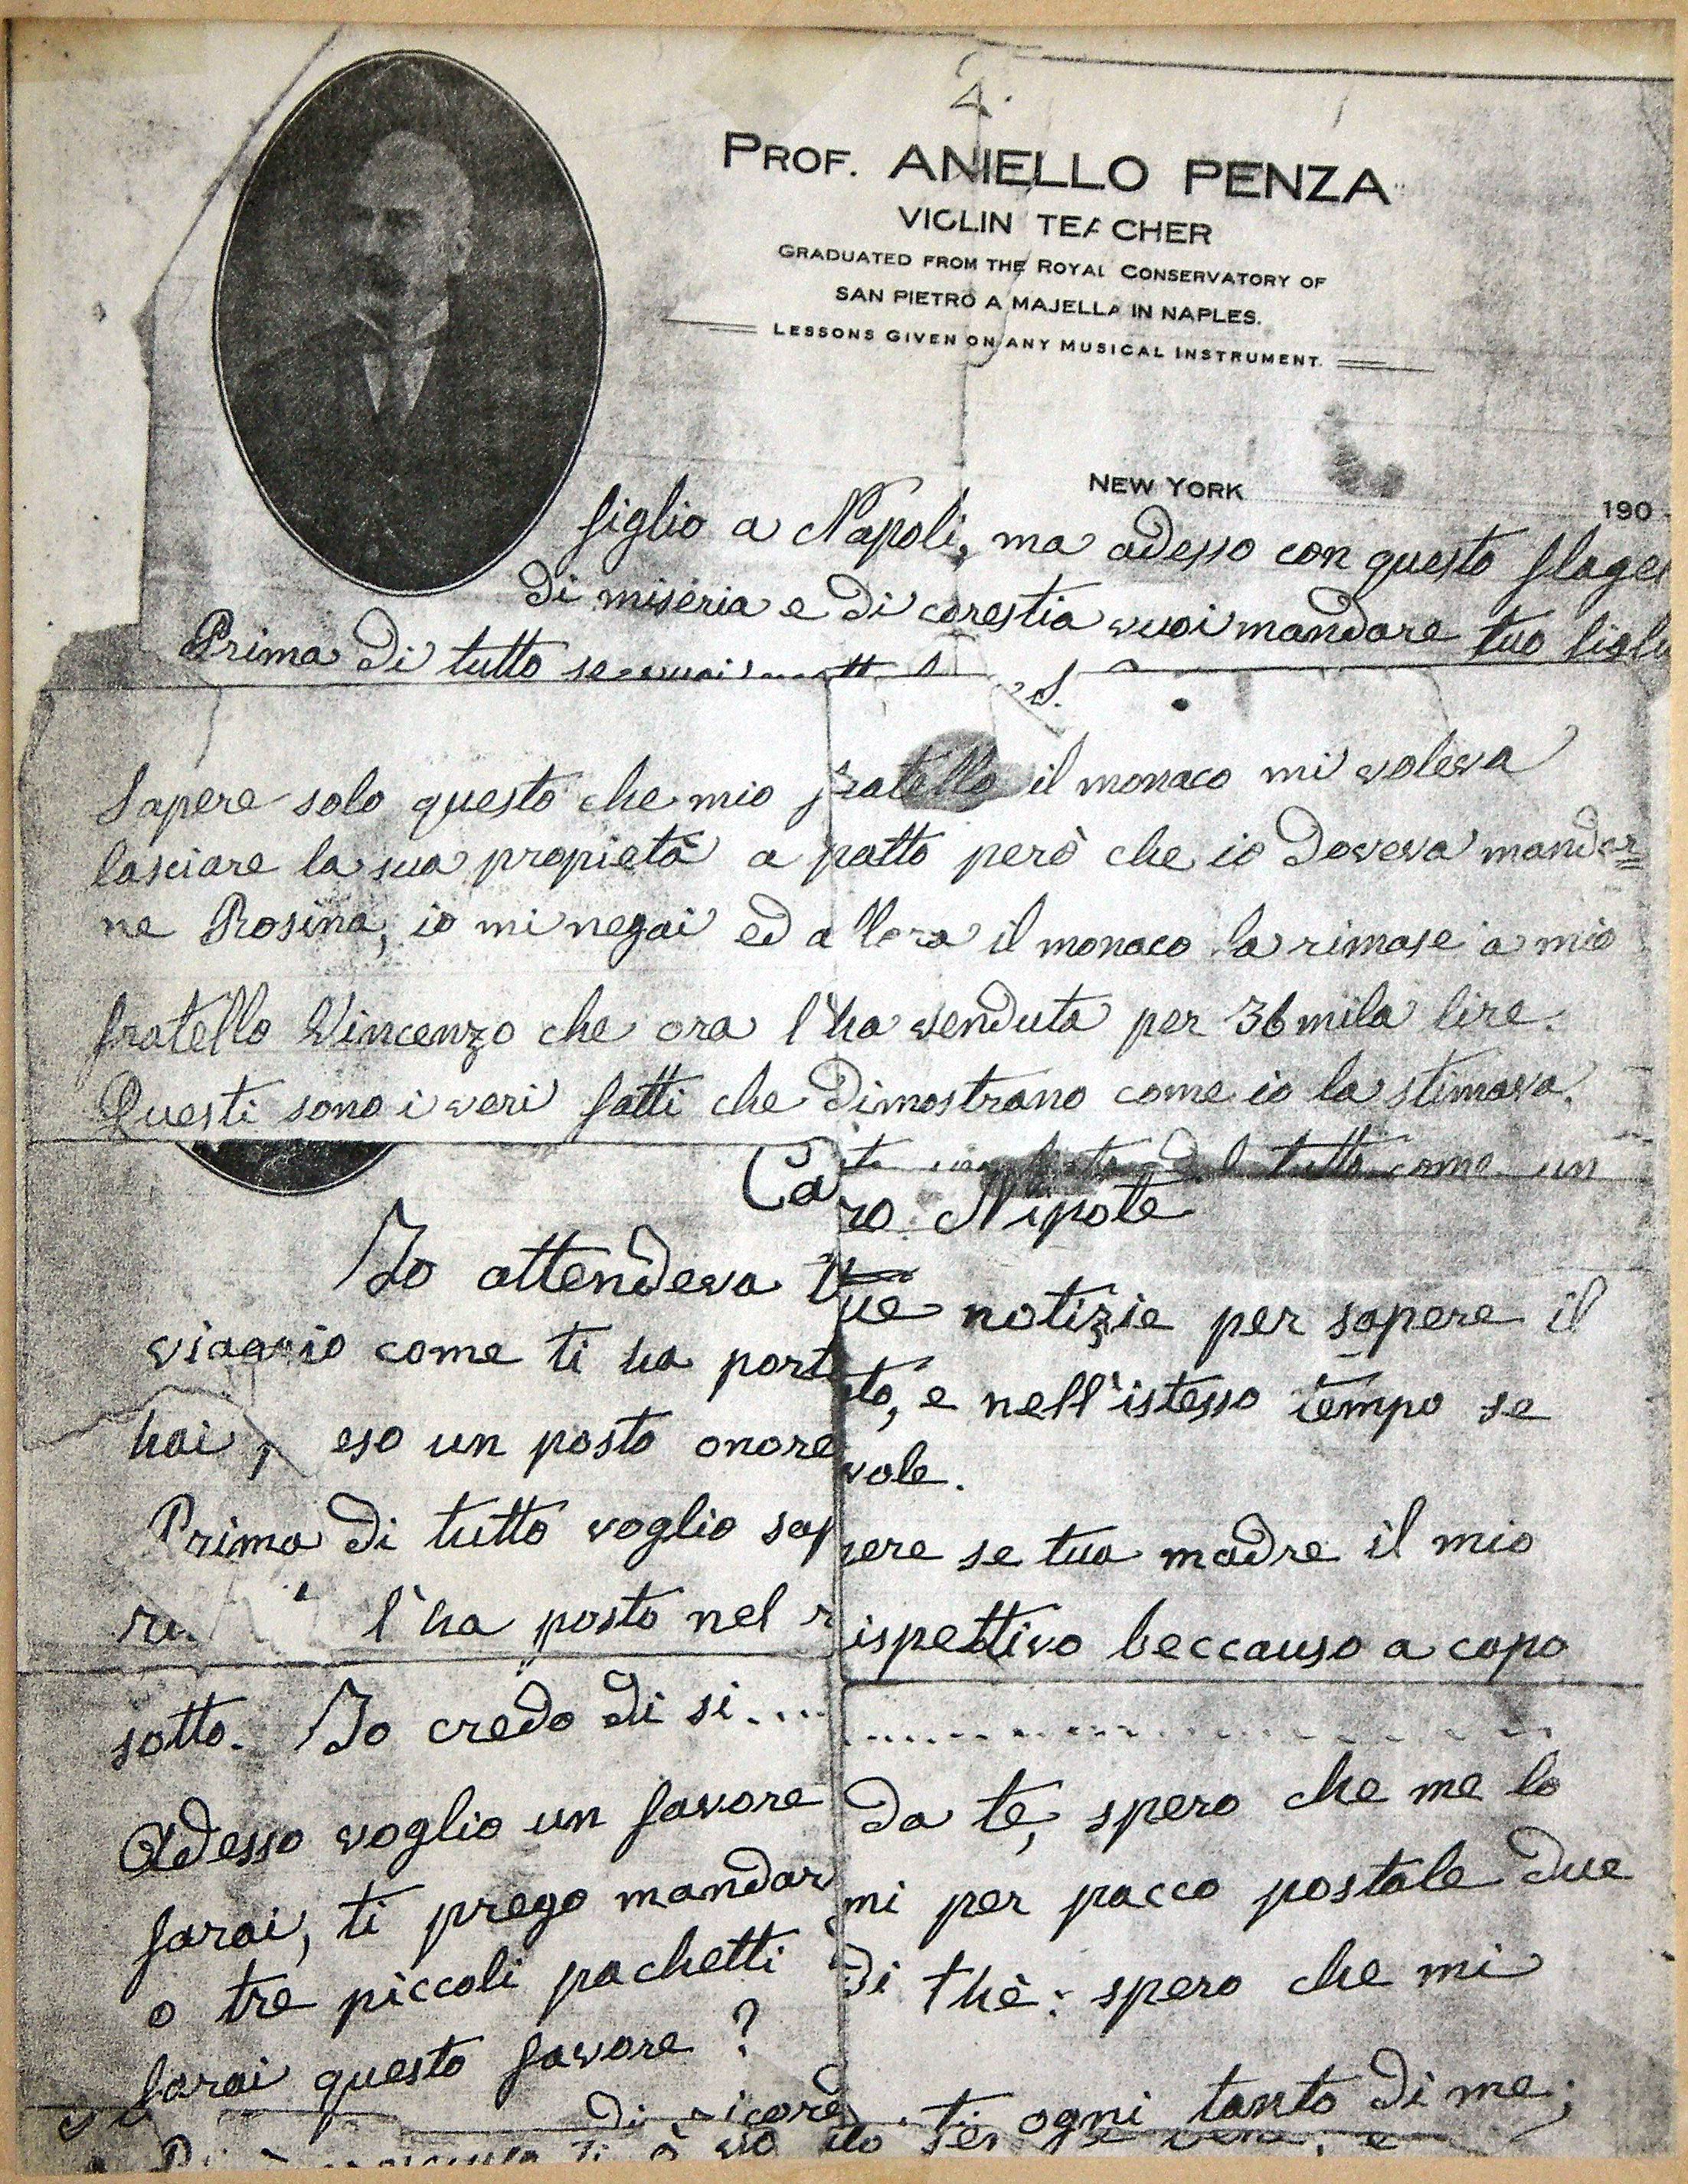 2.
PROF. ANIELLO PENZA
VIOLIN TEACHER
GRADUATED FROM THE ROYAL CONSERVATORY OF
SAN PIETRO A MAJELLA IN NAPLES.
LESSONS GIVEN ON ANY MUSICAL INSTRUMENT.
NEW YORK 190
figlio a Napoli, ma adesso con questo flage
di miseria e di carestia vuoi mandare tuo figlio
Prima di tutto se vuoi
Sapere solo questo che mio fratello il monaco mi voleva
lasciare la sua propietà a patto però che io doveva mandar=
ne Rosina, io mi negai ed allora il monaco la rimase a mio
fratello Vincenzo che ora l'ha venduta per 36 mila lire.
Questi sono i veri fatti che dimostrano come io la stimava.
tutto come un
Caro Nipote
Io attendeva tue notizie per sapere il
viaggio come ti ha portato, e nell'istesso tempo se
hai preso un posto onorevole.
Prima di tutto voglio sapere se tua madre il mio
l'ha posto nel rispettivo beccauso a capo
sotto. Io credo di si....
Adesso voglio un favore da te, spero che me lo
farai, ti prego mandarmi per pacco postale due
o tre piccoli pachetti di thè: spero che mi
farai questo favore?
di ricordarti ogni tanto di me;